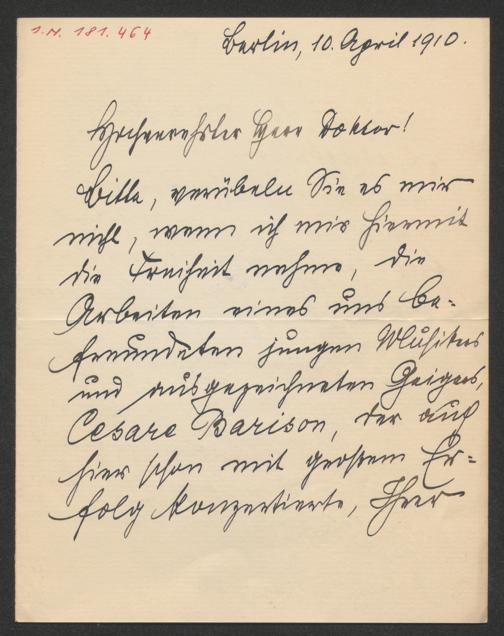 I.N. 181.464
Berlin, 10. April 1910.
Hochverehrter Herr Doktor!
Bitte, verübeln Sie es mir
nicht, wenn ich mir hiermit
die Freiheit nehme, die
Arbeiten eines uns be=
freundeten jungen Musikers
und ausgezeichneten Geigers,
Cesare Barison, der auch
hier schon mit großem Er=
folg konzertierte, Ihrer